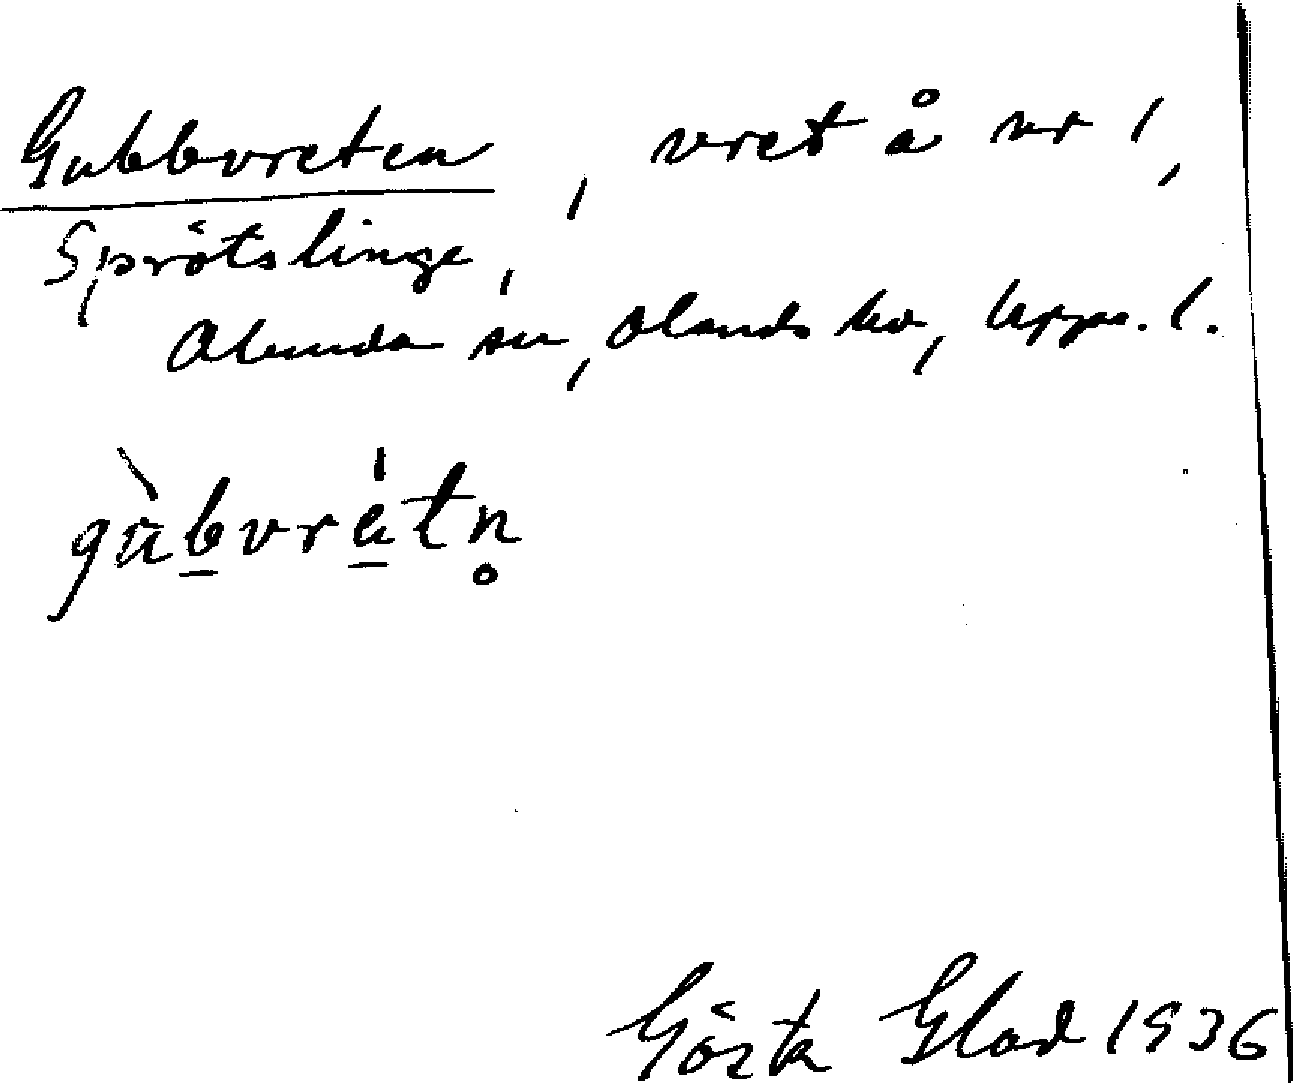 Gubbvreten, vret å nr 1,
Sprötslinge,
Alunda sn, Olands hd, Upps. l.
gùbvrétn̥
Gösta Glad 1936